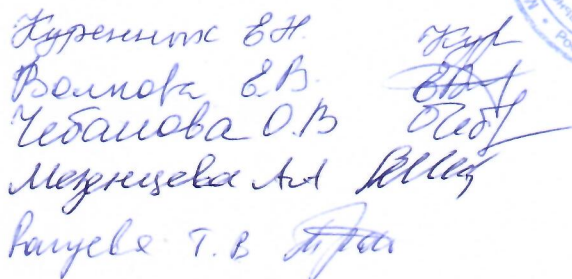 Куренных Е.Н. Кур
Волкова Е.В.
Чебанова О.В
Мезенцева А.А
Т.В